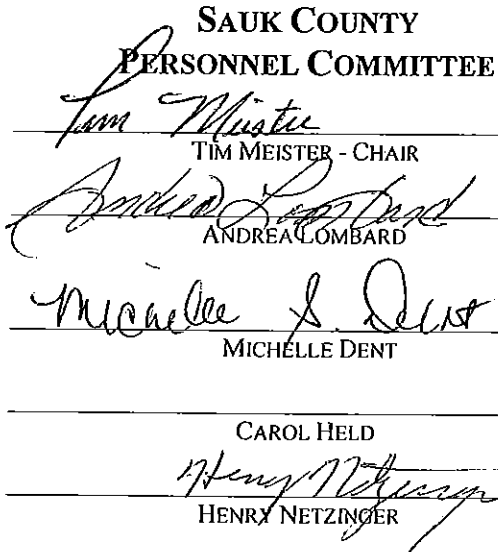 SAUK COUNTY
PERSONNEL COMMITTEE
Tim Meister
TIM MEISTER - CHAIR
Andrea Lombard
ANDREA LOMBARD
Michelle S. Dent
MICHELLE DENT
CAROL HELD
Henry Netzinger
HENRY NETZINGER